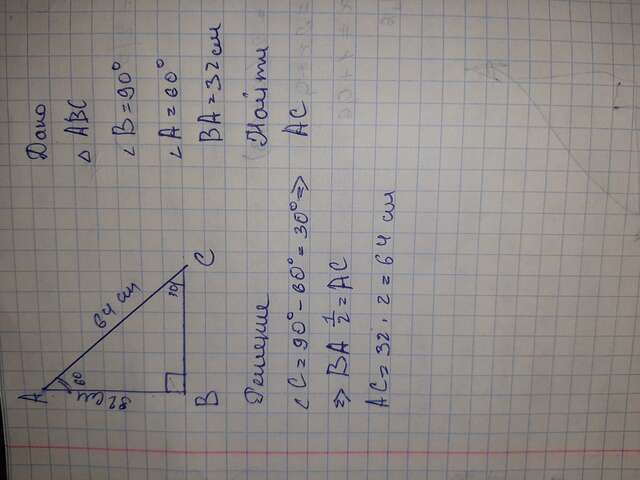 Дано
△ ABC
∠B=90°
∠A=60°
BA=32см
Найти
AC
A
60
32
64 см
30
B
C
Решение
∠C=90°-60°=30°⇒
⇒ BA 1/2=AC
AC=32·2=64 см